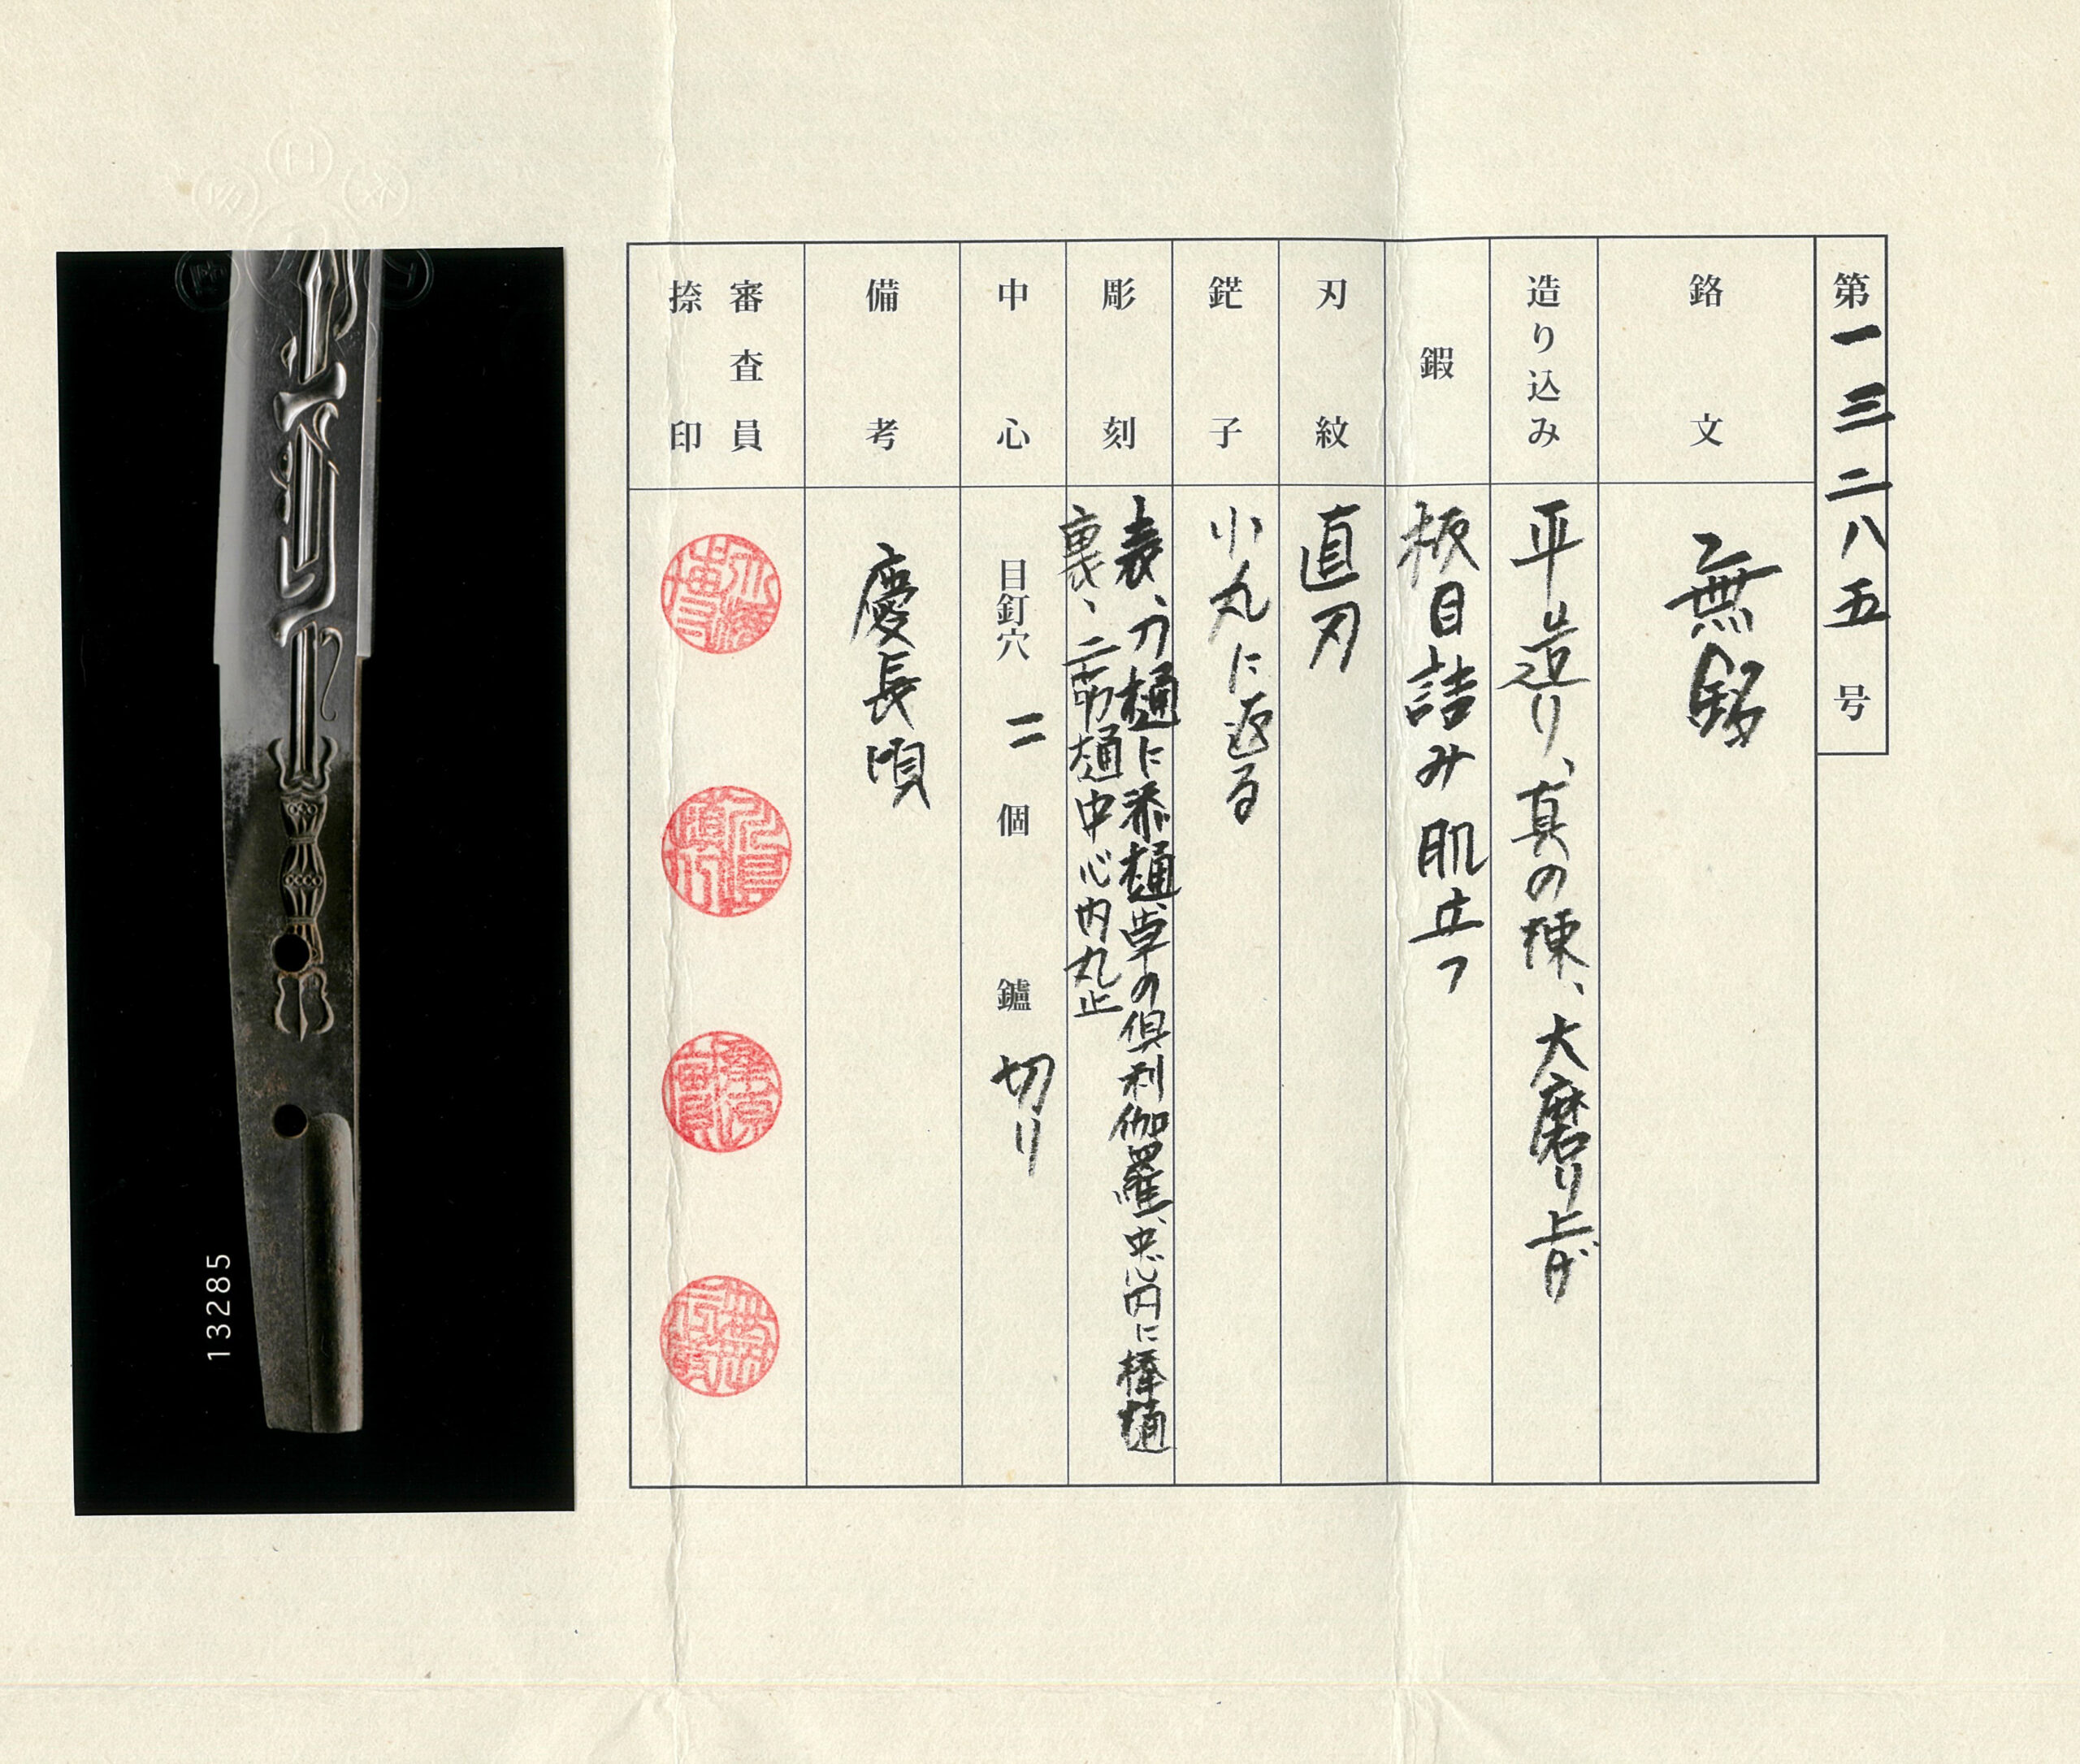 第一三二八五号
銘文
無銘
造り込み
平造り、真の棟、大磨り上げ
鍛
板目詰み肌立つ
刃紋
直刃
鋩子
小丸に返る
彫刻
表、刀樋に添樋、草の倶利伽羅、中心内に棒樋
裏、二筋樋中心内丸止
中心
目釘穴 二 個 鑢 切り
備考
慶長頃
審査員
捺印
13285